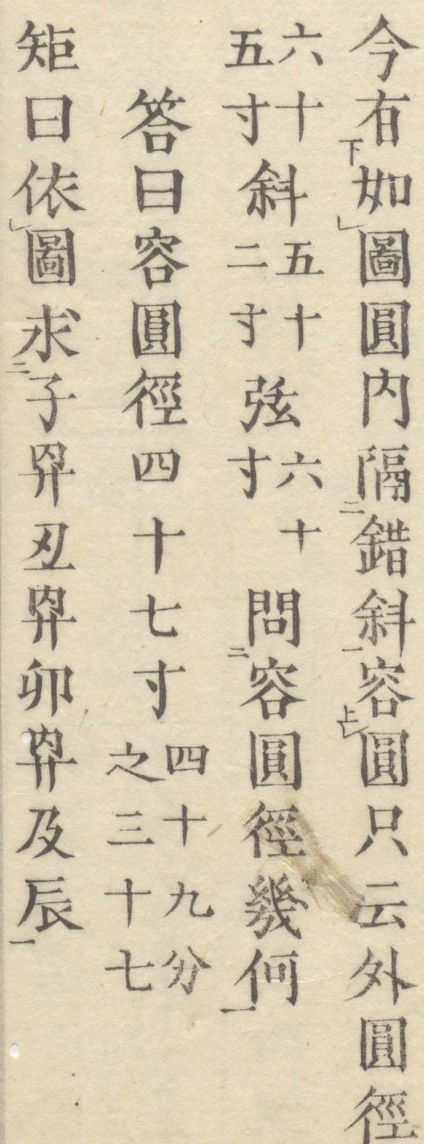 今有如圖圓内隔錯斜容圓只云外圓徑
六十五寸斜五十二寸弦六十寸問容圓徑幾何
答曰容圓徑四十七寸四十九分之三十七
矩曰依圖求子界丑界卯界及辰